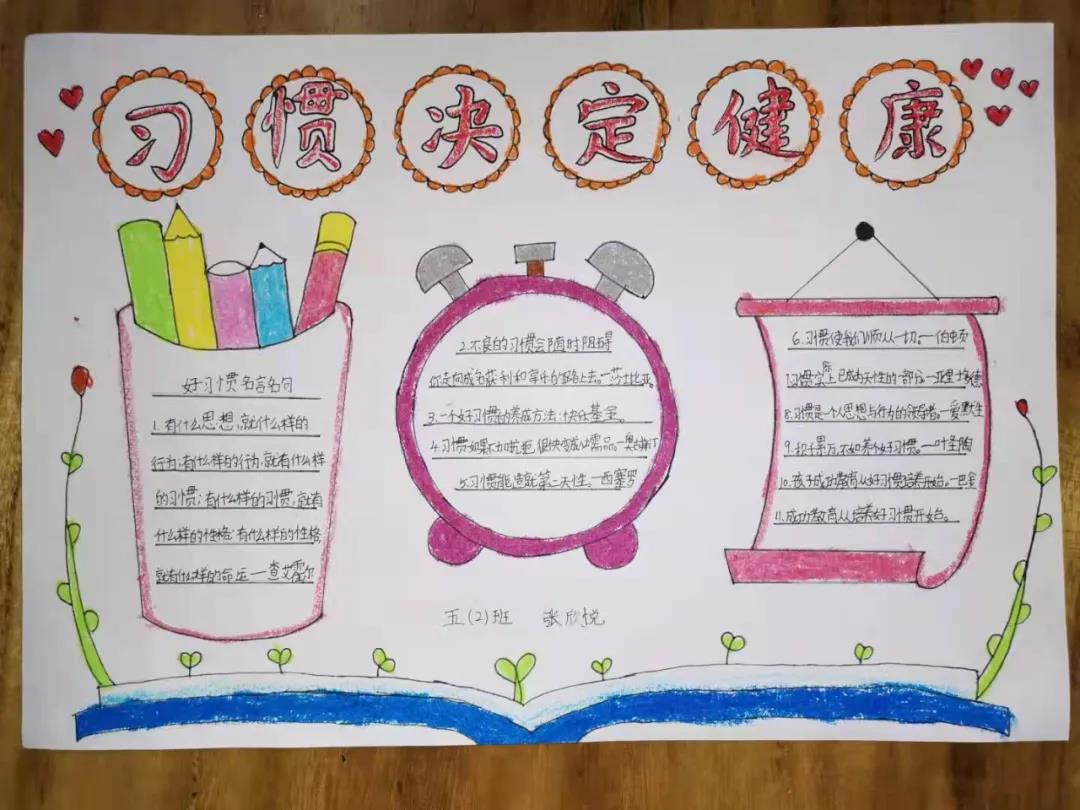 习惯决定健康
好习惯名言名句
1.有什么思想,就什么样的
行为;有什么样的行为,就有什么样
的习惯;有什么样的习惯,就有
什么样的性格;有什么样的性格
就有什么样的命运—查艾霍尔
2.不良的习惯会随时阻碍
你走向成名获利和享乐的路上去。—莎士比亚。
3.一个好习惯的养成方法:快乐基金。
4.习惯如果不加抗拒,很快变成必需品。—奥斯汀
5.习惯能造就第二天性。—西塞罗
6.习惯使我们顺从一切。—伯
7.习惯实际上已成为天性的一部分。—亚里士多德
8.习惯是个人思想与行为的领导者。—爱默生
9.积累万 不如养个好习惯。—叶圣陶
10.孩子成功教育从好习惯培养开始。—巴金
11.成功教育从培养好习惯开始。
五(2)班 张欣悦